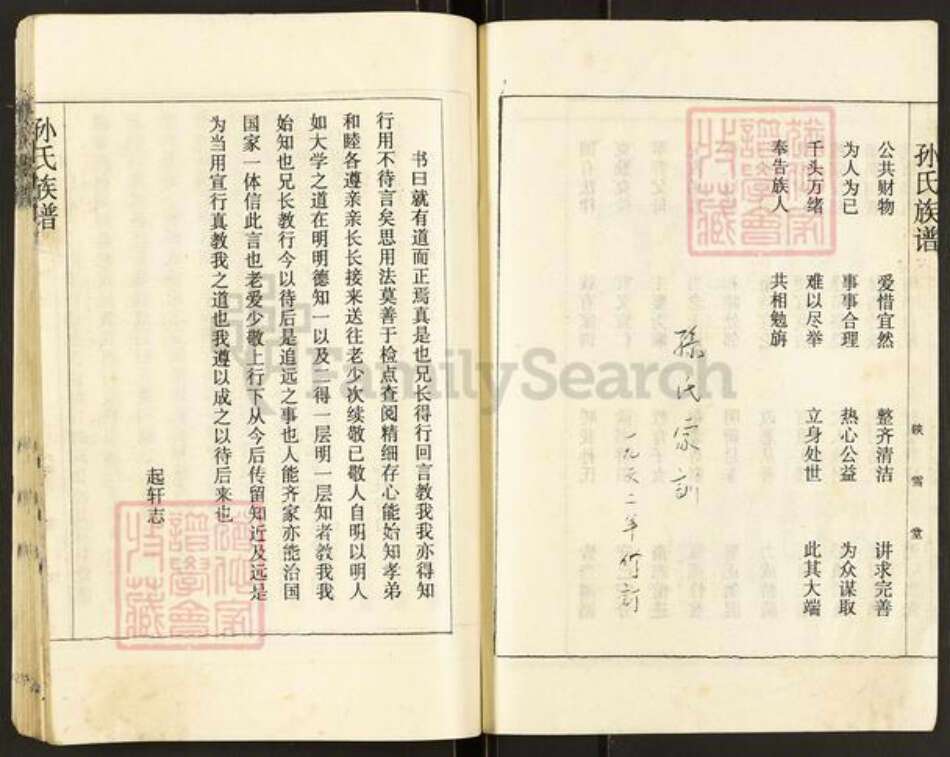 孙氏族谱
映雪堂
公共财物 爱惜宜然 整齐清洁 讲求完善
为人为己 事事合理 热心公益 为众谋取
千头万绪 难以尽举 立身处世 此其大端
奉告族人 共相勉旃
孫氏家訓
一九
二年
FamilySearch
书曰就有道而正焉真是也兄长得行回言教我我亦得知
行用不待言矣思用法莫善于检点查阅精细存心能始知孝弟
和睦各遵亲亲长长接来送往老少次续敬已敬人自明以明人
如大学之道在明明德知一以及二得一层明一层知者教我我
始知也兄长教行今以待后是追远之事也人能齐家亦能治国
国家一体信此言也老爱少敬上行下从今后传留知近及远是
为当用宣行真教我之道也我遵以成之以待后来也
起轩志
孙氏族谱